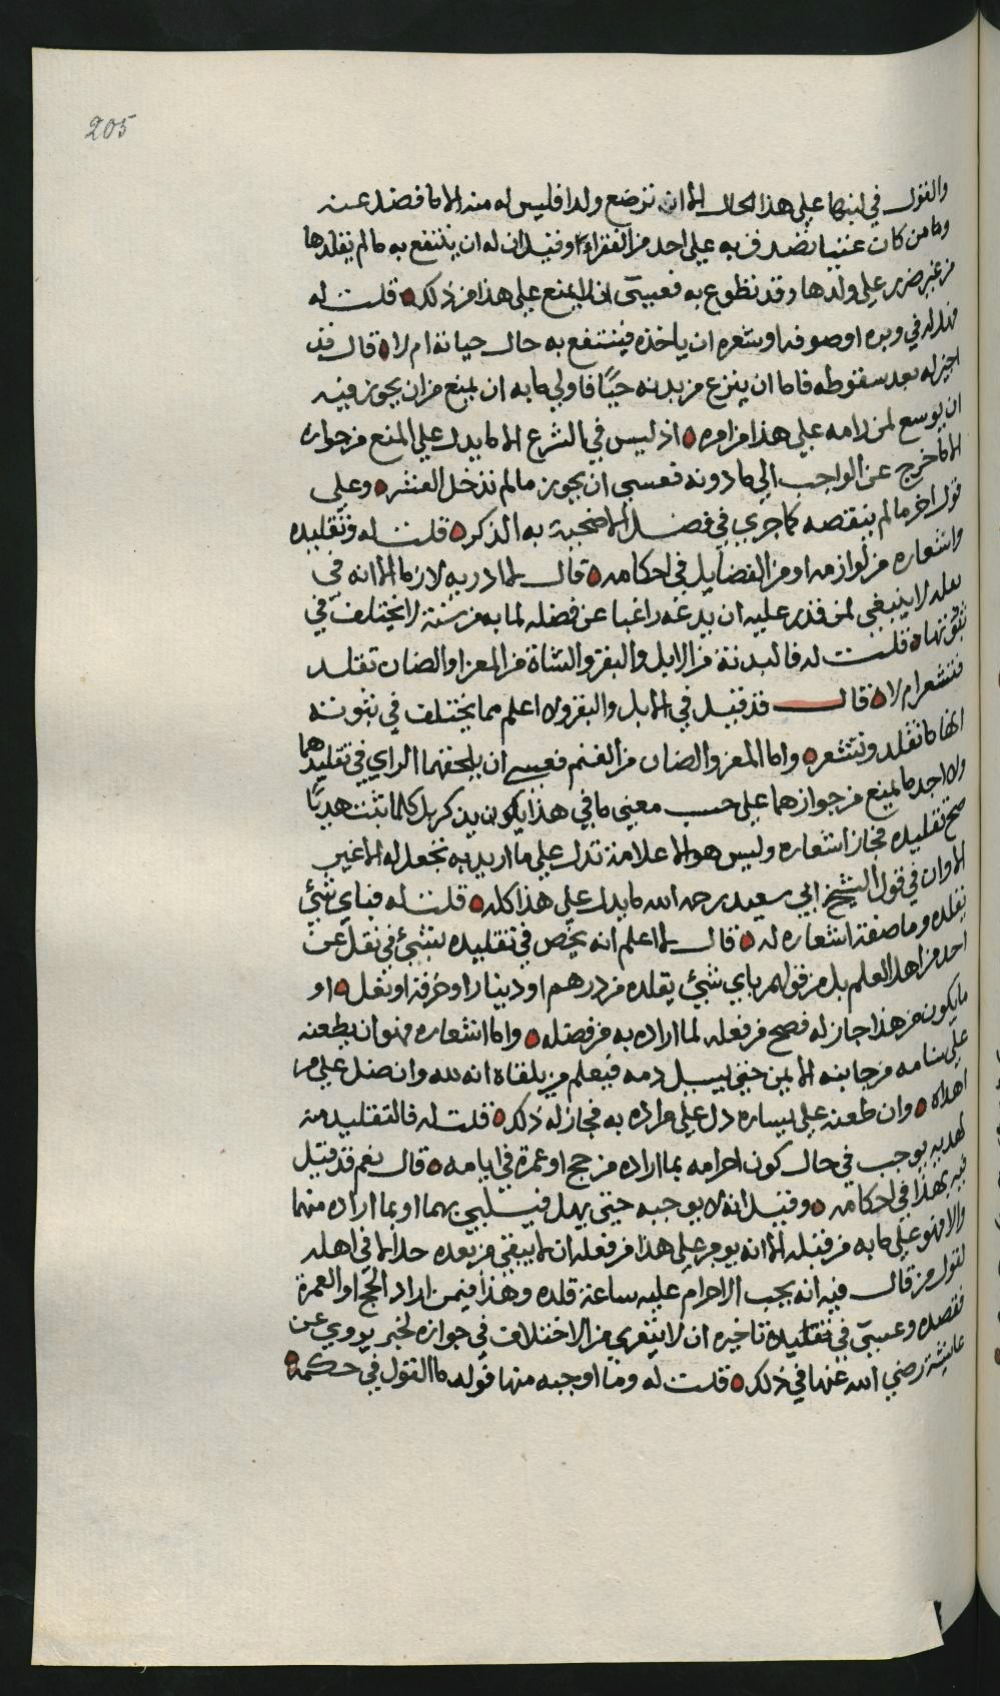 205
والقول في لبنها على هذا الحال الا ان ترضع ولدا فليس له منه الا ما فضل عنه
وما من كان غنيا تصدق به على احد من الفقراء وقيل ان له ان ينتفع به ما لم يقلدها
من غير ضرر على ولدها وقد تطوع به فعسى ان لا يمنع على هذا من ذلك قلت له
فهل له في وبره او صوفه او شعره ان ياخذه فينتفع به حال حياته ام لا قال قد
اجيز له بعد سقوطه فاما ان ينزع من بدنه حيًّا فاولى ما به ان يمنع من ان يجوز فيه
ان يوسع لمن رامه على هذا من امره اذ ليس في الشرع الا ما يدل على المنع من جوازه
الا ما خرج عن الواجب الى ما دونه فعسى ان يجوز ما لم تدخل العشر وعلى
قول اخر ما لم ينقصه كما جرى في فصل الاضحية به الذكر قلت له وتقليده
واشعاره من لوازمه او من الفضايل في احكامه قال لا ادريه لازما الا انه في
بعله لا ينبغي لمن قدر عليه ان يدعه راغبا عن فضله لما به من سنة لا يختلف في
ثبوتها قلت له فالبدنة من الابل والبقر والشاة من المعز او الضان تقلد
فتشعر ام لا قال قد قيل في الابل والبقر ولا اعلم مما يختلف في ثبوته
انها ما تقلد وتشعر واما المعز والضان من الغنم فعسى ان يلحقهما الراي في تقليدهما
ولا اجد ما يمنع من جوازهما على حسب معنى ما في هذا يكون يذكر بل كلما ثبت هديًا
صح تقليده فجاز اشعاره وليس هو الا علامة تدل على ما اريد به بجعل له لا غير
الا وان في قول الشيخ ابي سعيد رحمه الله ما يدل على هذا كله قلت له فباي شئ
يقلده وما صفة اشعاره له قال لا اعلم انه يخص في تقليده بشئ في نقل عن
احد من اهل العلم بل من قولهم باي شئ يقلده من درهم او دينار او خرقة او نعل او
ما يكون من هذا جاز له فصح من فعله لما اراده به من فضله واما اشعاره فهو ان يطعنه
على سنامه من جانبه الايمن حتى يسيل دمه فيعلم من يلقاه انه لله وان ضل على من
اهداه وان طعنه على يساره دل على مراده به فجاز له ذلك قلت له فالتقليد منه
لهديه يوجب في حال كون احرامه بما اراده من حج او عمرة في ايامه قال نعم قد قيل
فيه بهذا في احكامه وقيل انه لا يوجبه حتى يهل فيلبي بهما او بما اراده منهما
والا فهو على ما به من قبله الا انه يومر على هذا من فعله ان لا يبقى من بعده حلالا في اهله
لقول من قال فيه انه يجب الاحرام عليه ساعة قلده وهذا فيمن اراد الحج او العمرة
فقصده وعسى في تقليده تاخيره ان لا يتعرى من الاختلاف في جوازه لخبر يروى عن
عائشة رضي الله عنها في ذلك قلت له وما اوجبه منها قوله ما القول في حكمه